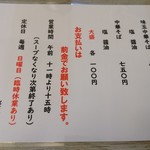 味玉中華そば
塩　醤油
中華そば
塩　醤油　七五〇円
大盛　各　一〇〇円
お支払いは
前金でお願い致します。
営業時間　午前　十一時より十五時
（スープなくなり次第終了あり）
定休日　毎週　日曜日（臨時休業あり）